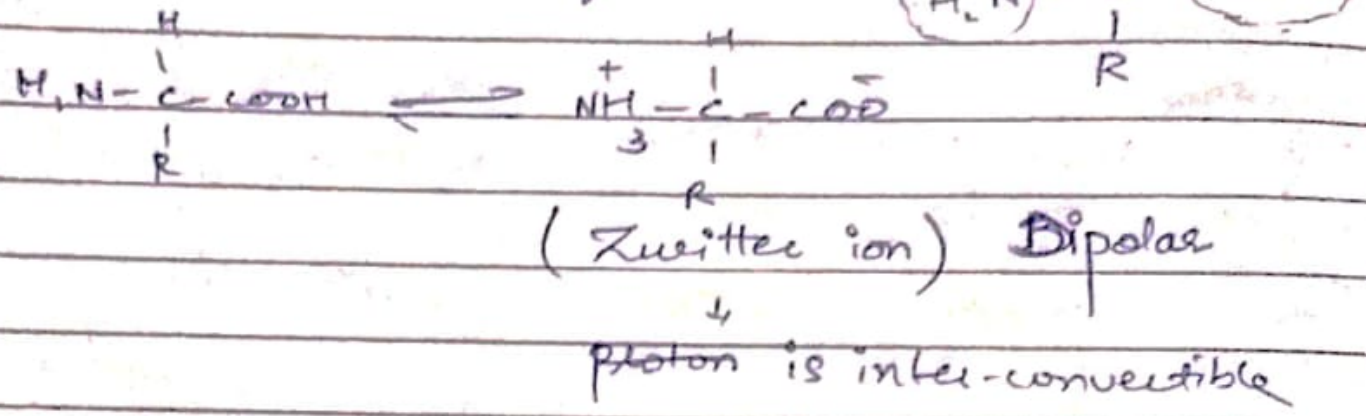 H₂N
R
H
H
H₂N-C-COOH ⇌ N⁺H₃-C-COO⁻
R
R
(Zwitter ion) Bipolar
↓
proton is inter-convertible